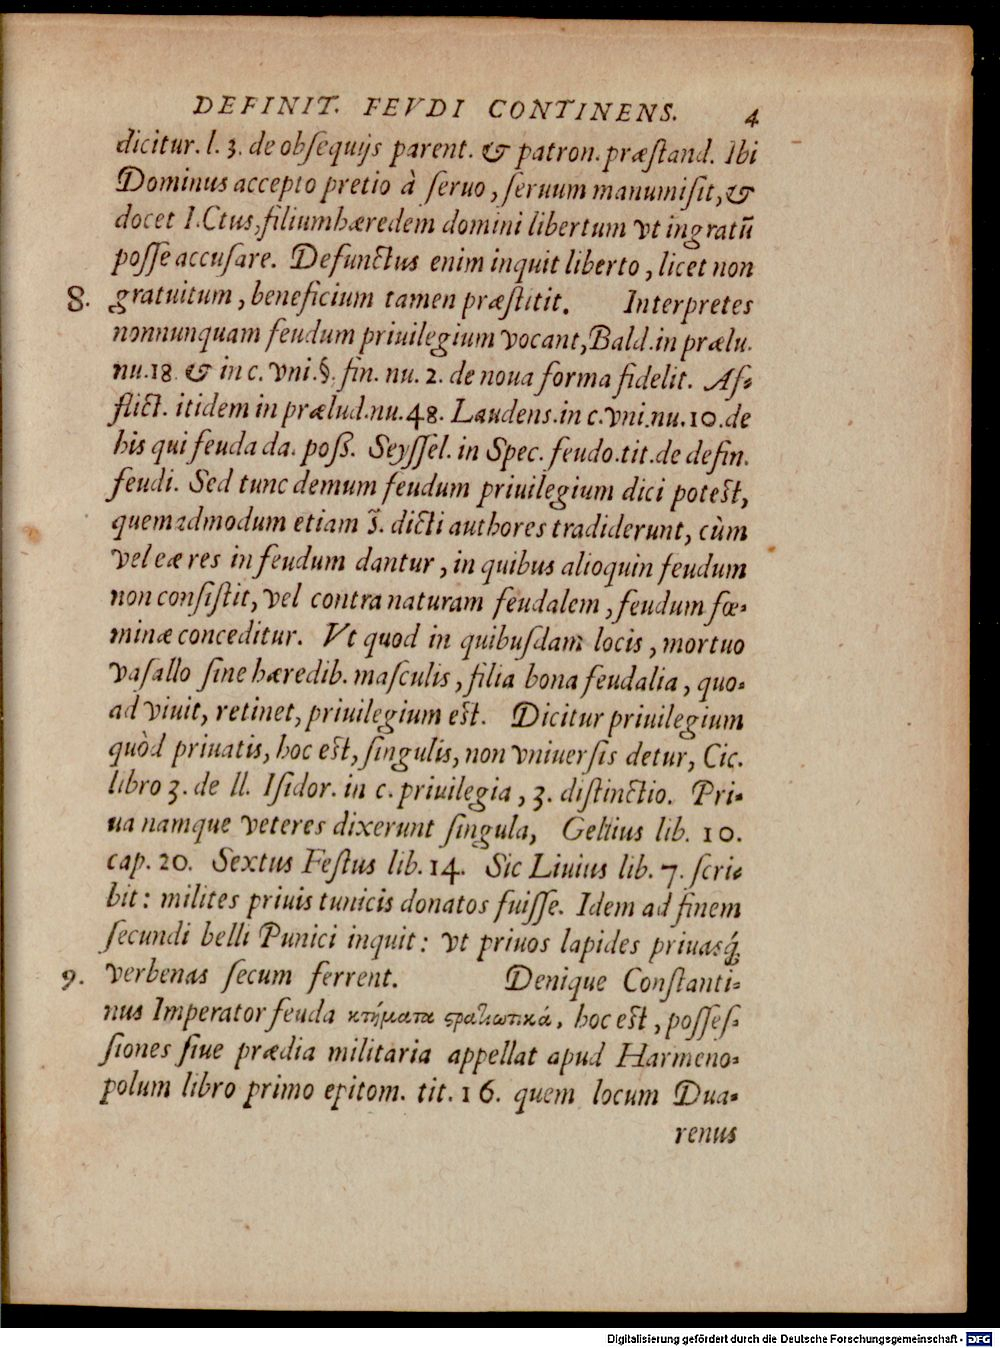 DEFINIT. FEVDI CONTINENS. 4
dicitur. l. 3. de obſequijs parent. & patron. præſtand. Ibi
Dominus accepto pretio à ſeruo, ſeruum manumiſit, &
docet I.Ctus, filium hæredem domini libertum vt ingratū
poſſe accuſare. Defunctus enim inquit liberto, licet non
8. gratuitum, beneficium tamen præſtitit. Interpretes
nonnunquam feudum priuilegium vocant, Bald. in prælu.
nu. 18. & in c. vni. §. fin. nu. 2. de noua forma fidelit. Af-
flict. itidem in prælud. nu. 48. Laudens. in c. vni. nu. 10. de
his qui feuda da. poß. Seyſſel. in Spec. feudo. tit. de defin.
feudi. Sed tunc demum feudum priuilegium dici poteſt,
quemadmodum etiam dicti authores tradiderunt, cùm
vel eæ res in feudum dantur, in quibus alioquin feudum
non conſiſtit, vel contra naturam feudalem, feudum fœ-
minæ conceditur. Vt quod in quibuſdam locis, mortuo
vaſallo ſine hæredib. maſculis, filia bona feudalia, quo-
ad viuit, retinet, priuilegium eſt. Dicitur priuilegium
quòd priuatis, hoc eſt, ſingulis, non vniuerſis detur, Cic.
libro 3. de ll. Iſidor. in c. priuilegia, 3. diſtinctio. Pri-
ua namque veteres dixerunt ſingula, Gellius lib. 10.
cap. 20. Sextus Feſtus lib. 14. Sic Liuius lib. 7. ſcri-
bit: milites priuis tunicis donatos fuiſſe. Idem ad finem
ſecundi belli Punici inquit: vt priuos lapides priuasq́;
9. verbenas ſecum ferrent. Denique Conſtanti-
nus Imperator feuda κτήματα ϛρατιωτικά, hoc eſt, poſſeſ-
ſiones ſiue prædia militaria appellat apud Harmeno-
polum libro primo epitom. tit. 16. quem locum Dua-
renus
Digitalisierung gefördert durch die Deutsche Forschungsgemeinschaft - DFG